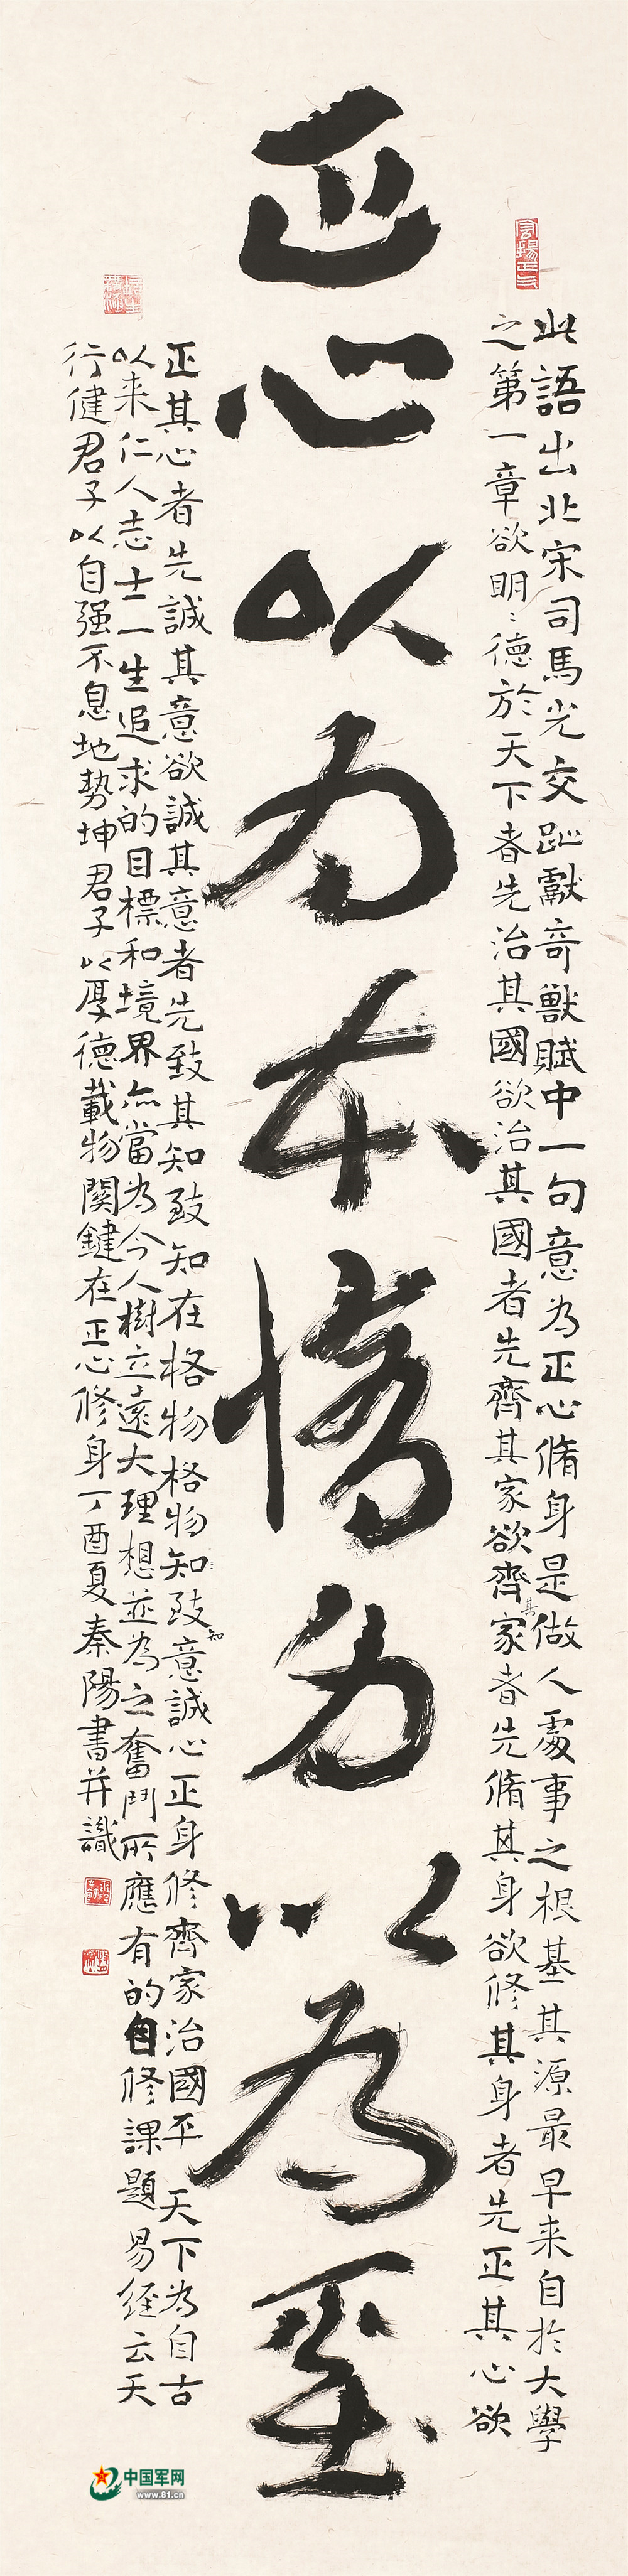 正心以为本修身以為基
此語出北宋司馬光交趾獻奇獸賦中一句意為正心脩身是做人處事之根基其源最早来自於大學
之第一章欲明〻德於天下者先治其國欲治其國者先齊其家欲齊其家者先脩其身欲修其身者先正其心欲
正其心者先誠其意欲誠其意者先致其知致知在格物格物知致知意誠心正身修齊家治國平天下為自古
以来仁人志士一生追求的目標和境界亦當為今人樹立遠大理想並為之奮鬥所應有的自修課題易經云天
行健君子以自强不息地勢坤君子以厚德載物關鍵在正心修身丁酉夏秦陽書并識
中国军网
www.81.cn